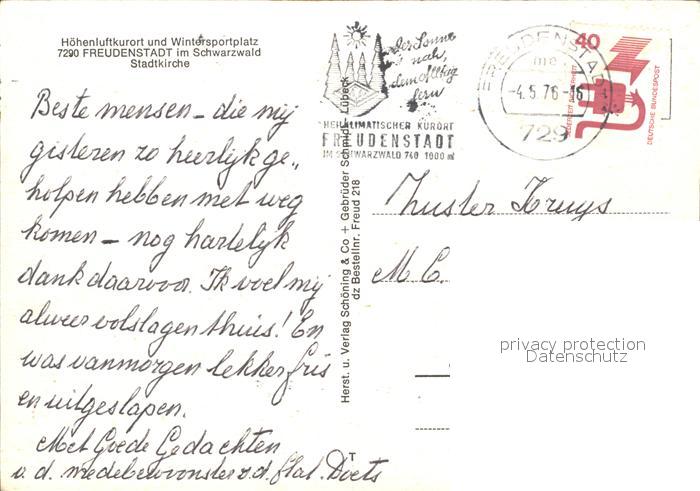 Höhenluftkurort und Wintersportplatz
7290 FREUDENSTADT im Schwarzwald
Stadtkirche
Beste mensen – die mij
gisteren zo heerlijk ge„
holpen hebben met weg
komen – nog hartelijk
dank daarvoor. Ik voel mij
alweer volslagen thuis! En
was vanmorgen lekker fris
en uitgeslapen.
Met Goede Gedachten
v. d. medebewoonster v. d. flat. Doets
Herst. u. Verlag Schöning & Co + Gebrüder Schmidt, Lübeck
dz Bestellnr. Freud 218
der Sonne
so nah,
dem Alltag
fern
HEILKLIMATISCHER KURORT
FREUDENSTADT
IM SCHWARZWALD 740 1000 m
FREUDENSTADT
-4.5.76-16
729
40
JEDERZEIT SICHERHEIT
DEUTSCHE BUNDESPOST
Zuster Kruys
M C.
privacy protection
Datenschutz